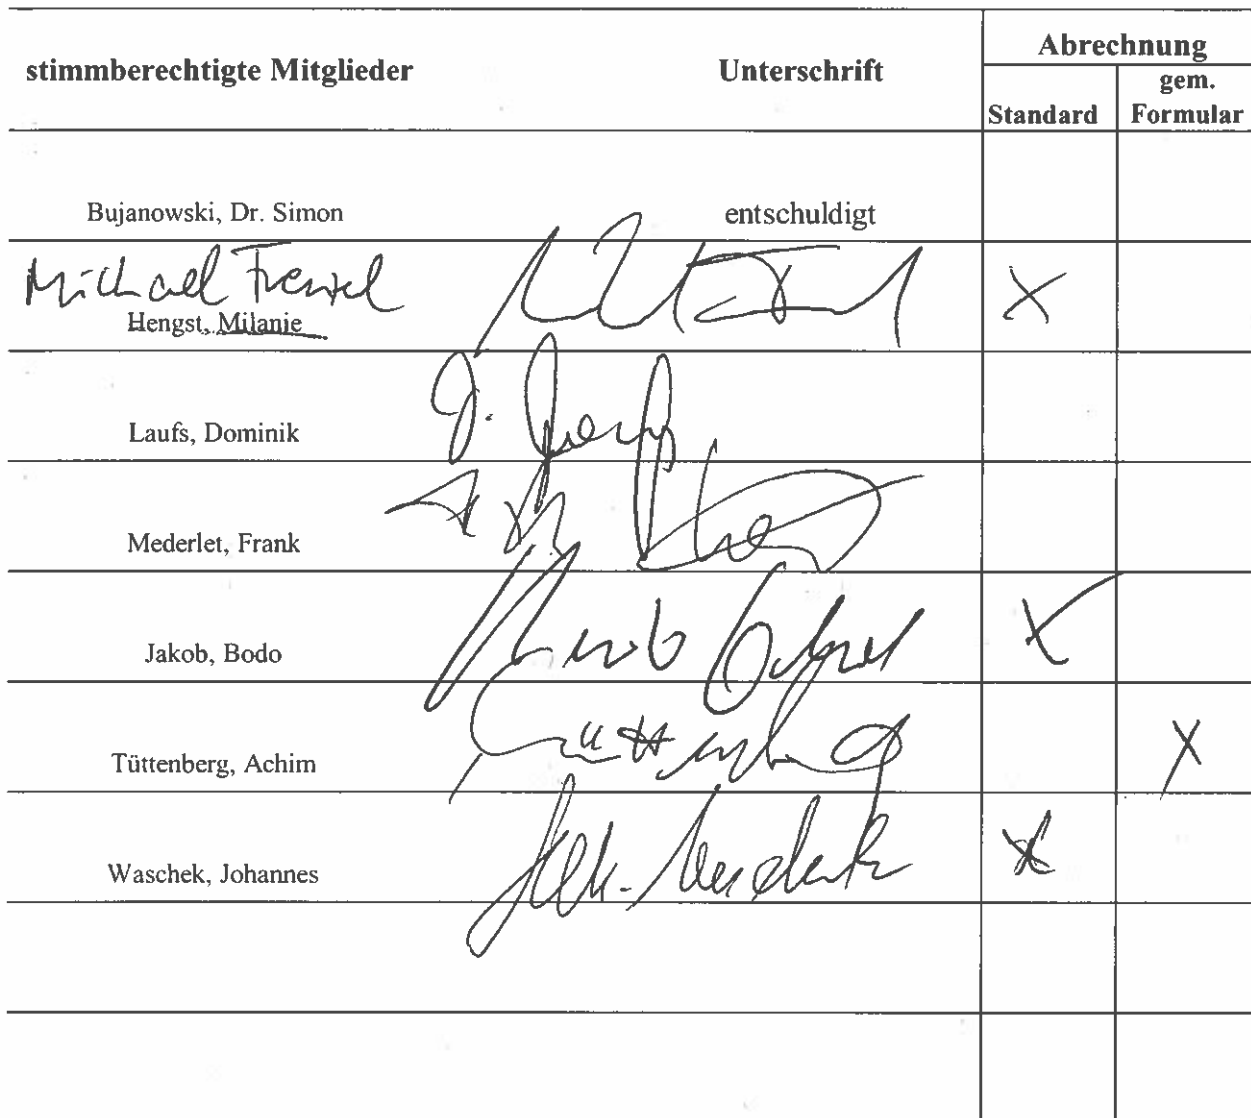 stimmberechtigte Mitglieder Unterschrift Abrechnung
Standard gem. Formular
Bujanowski, Dr. Simon entschuldigt
Michael Frenzel X
Hengst, Milanie
Laufs, Dominik
Mederlet, Frank
Jakob, Bodo X
Tüttenberg, Achim X
Waschek, Johannes X